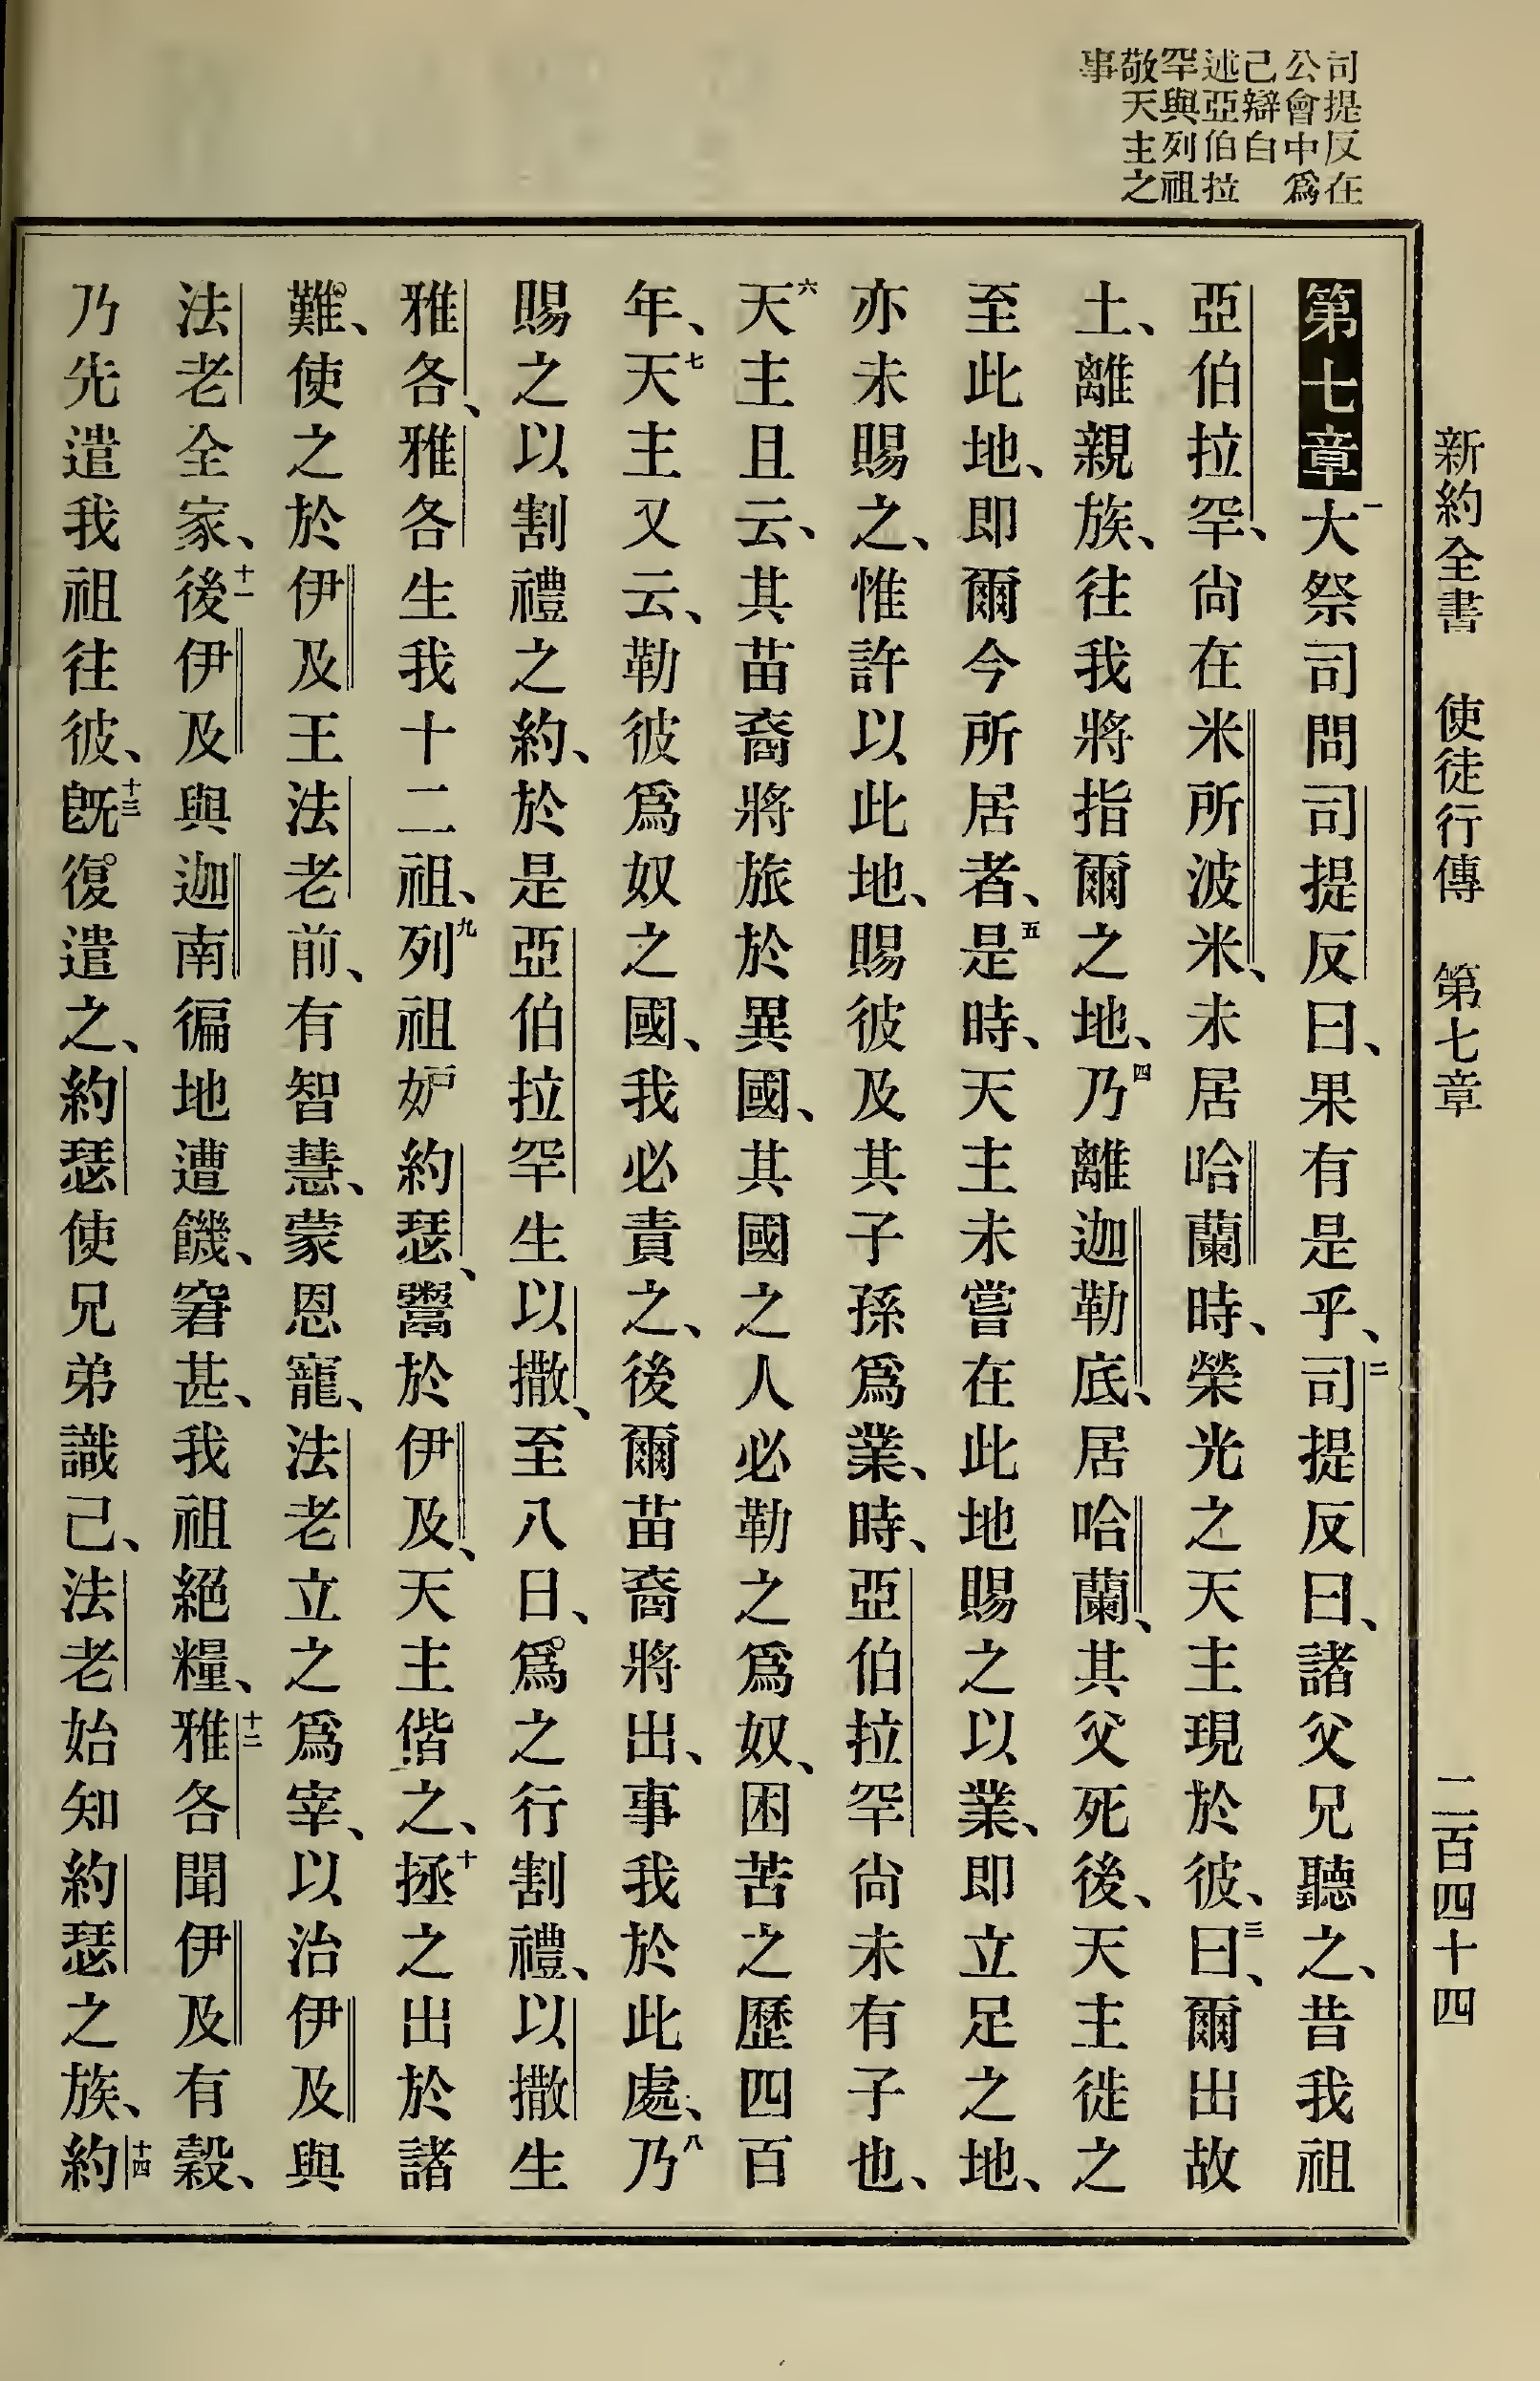 新約全書 使徒行傳 第七章 二百四十四
司提反在
公會中爲
己辯白
述亞伯拉
罕與列祖
敬天主之
事
第七章一大祭司問司提反曰、果有是乎、二司提反曰、諸父兄聽之、昔我祖
亞伯拉罕、尙在米所波米、未居哈蘭時、榮光之天主現於彼、三曰、爾出故
土、離親族、往我將指爾之地、四乃離迦勒底、居哈蘭、其父死後、天主徙之
至此地、即爾今所居者、五是時、天主未嘗在此地賜之以業、即立足之地、
亦未賜之、惟許以此地、賜彼及其子孫爲業、時、亞伯拉罕尙未有子也、
六天主且云、其苗裔將旅於異國、其國之人必勒之爲奴、困苦之歷四百
年、七天主又云、勒彼爲奴之國、我必責之、後爾苗裔將出、事我於此處、八乃
賜之以割禮之約、於是亞伯拉罕生以撒、至八日、爲之行割禮、以撒生
雅各、雅各生我十二祖、九列祖妒約瑟、鬻於伊及、天主偕之、十拯之出於諸
難、使之於伊及王法老前、有智慧、蒙恩寵、法老立之爲宰、以治伊及與
法老全家、十一後伊及與迦南徧地遭饑、窘甚、我祖絕糧、十二雅各聞伊及有穀、
乃先遣我祖往彼、十三旣復遣之、約瑟使兄弟識己、法老始知約瑟之族、十四約